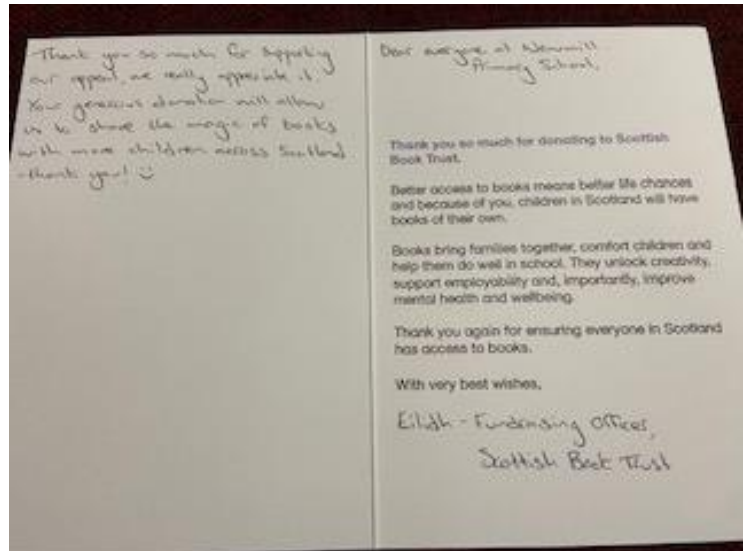 Thank you so much for supporting
our appeal, we really appreciate it.
Your generous donation will allow
us to share the magic of books
with more children across Scotland
-thank you! :)
Dear everyone at Newmill
Primary School,
Thank you so much for donating to Scottish
Book Trust.
Better access to books means better life chances
and because of you, children in Scotland will have
books of their own.
Books bring families together, comfort children and
help them do well in school. They unlock creativity,
support employability and, importantly, improve
mental health and wellbeing.
Thank you again for ensuring everyone in Scotland
has access to books.
With very best wishes,
Eilidh - Fundraising Officer,
Scottish Book Trust